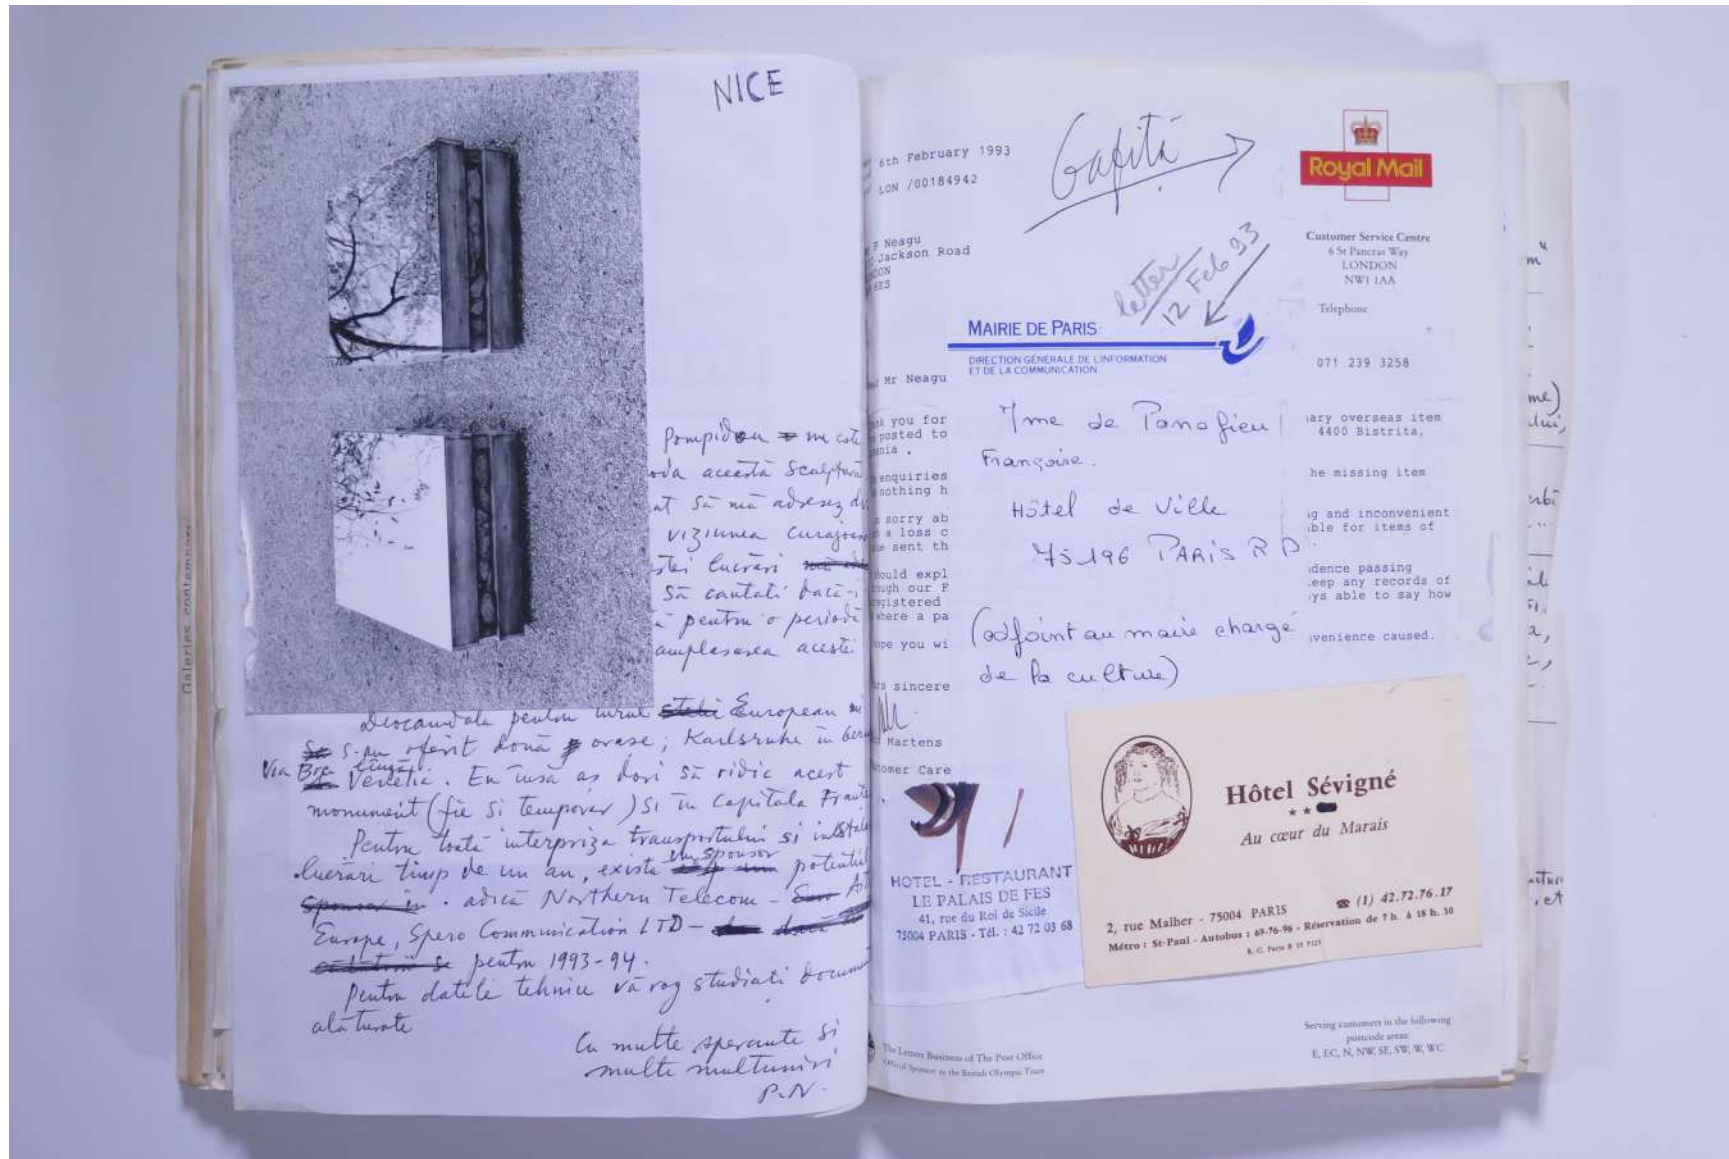 NICE
Pompidou nu este
această sculptură
să mă adresez
viziunea
lucrări
să cautati dacă-i
pentru o periodă
amplasarea acestei
Deocamdata pentru turul European
s-au oferit două orase; Karlsruhe în
Via lîngă
Venetia. Eu însă as dori să ridic acest
monument (fie si temporar) si în capitala
Pentru toată interpriza transportului si
un sponsor
lucrări timp de un an, există potential
adică Northern Telecom -
Europe, Spero Communication LTD -
pentru 1993-94.
Pentru datele tehnice vă rog studiati
alăturate
Cu multe sperante si
multe multumiri
P.N.
Galeries contemporaines
6th February 1993
LON /00184942
P Neagu
Jackson Road
Mr Neagu
you for
posted to
enquiries
nothing h
sorry ab
a loss c
sent th
expl
ough our P
gistered
where a pa
ope you wi
sincere
Martens
Care
Gafită
letter
12 Feb 93
Royal Mail
Customer Service Centre
6 St Pancras Way
LONDON
NW1 1AA
Telephone
071 239 3258
overseas item
4400 Bistrita,
he missing item
g and inconvenient
ble for items of
dence passing
eep any records of
ys able to say how
venience caused.
MAIRIE DE PARIS
DIRECTION GÉNÉRALE DE L'INFORMATION
ET DE LA COMMUNICATION
Mme de Panafieu
Françoise.
Hôtel de Ville
75196 PARIS R P
(adjoint au maire chargé
de la culture)
HOTEL - RESTAURANT
LE PALAIS DE FES
41, rue du Roi de Sicile
75004 PARIS - Tél. : 42 72 03 68
Hôtel Sévigné
Au cœur du Marais
2, rue Malher - 75004 PARIS ☎ (1) 42.72.76.17
Métro : St-Paul - Autobus : 69-76-96 - Réservation de 7 h. à 18 h. 30
The Letters Business of The Post Office
Official Sponsor to the British Olympic Team
Serving customers in the following
postcode areas:
E, EC, N, NW, SE, SW, W, WC